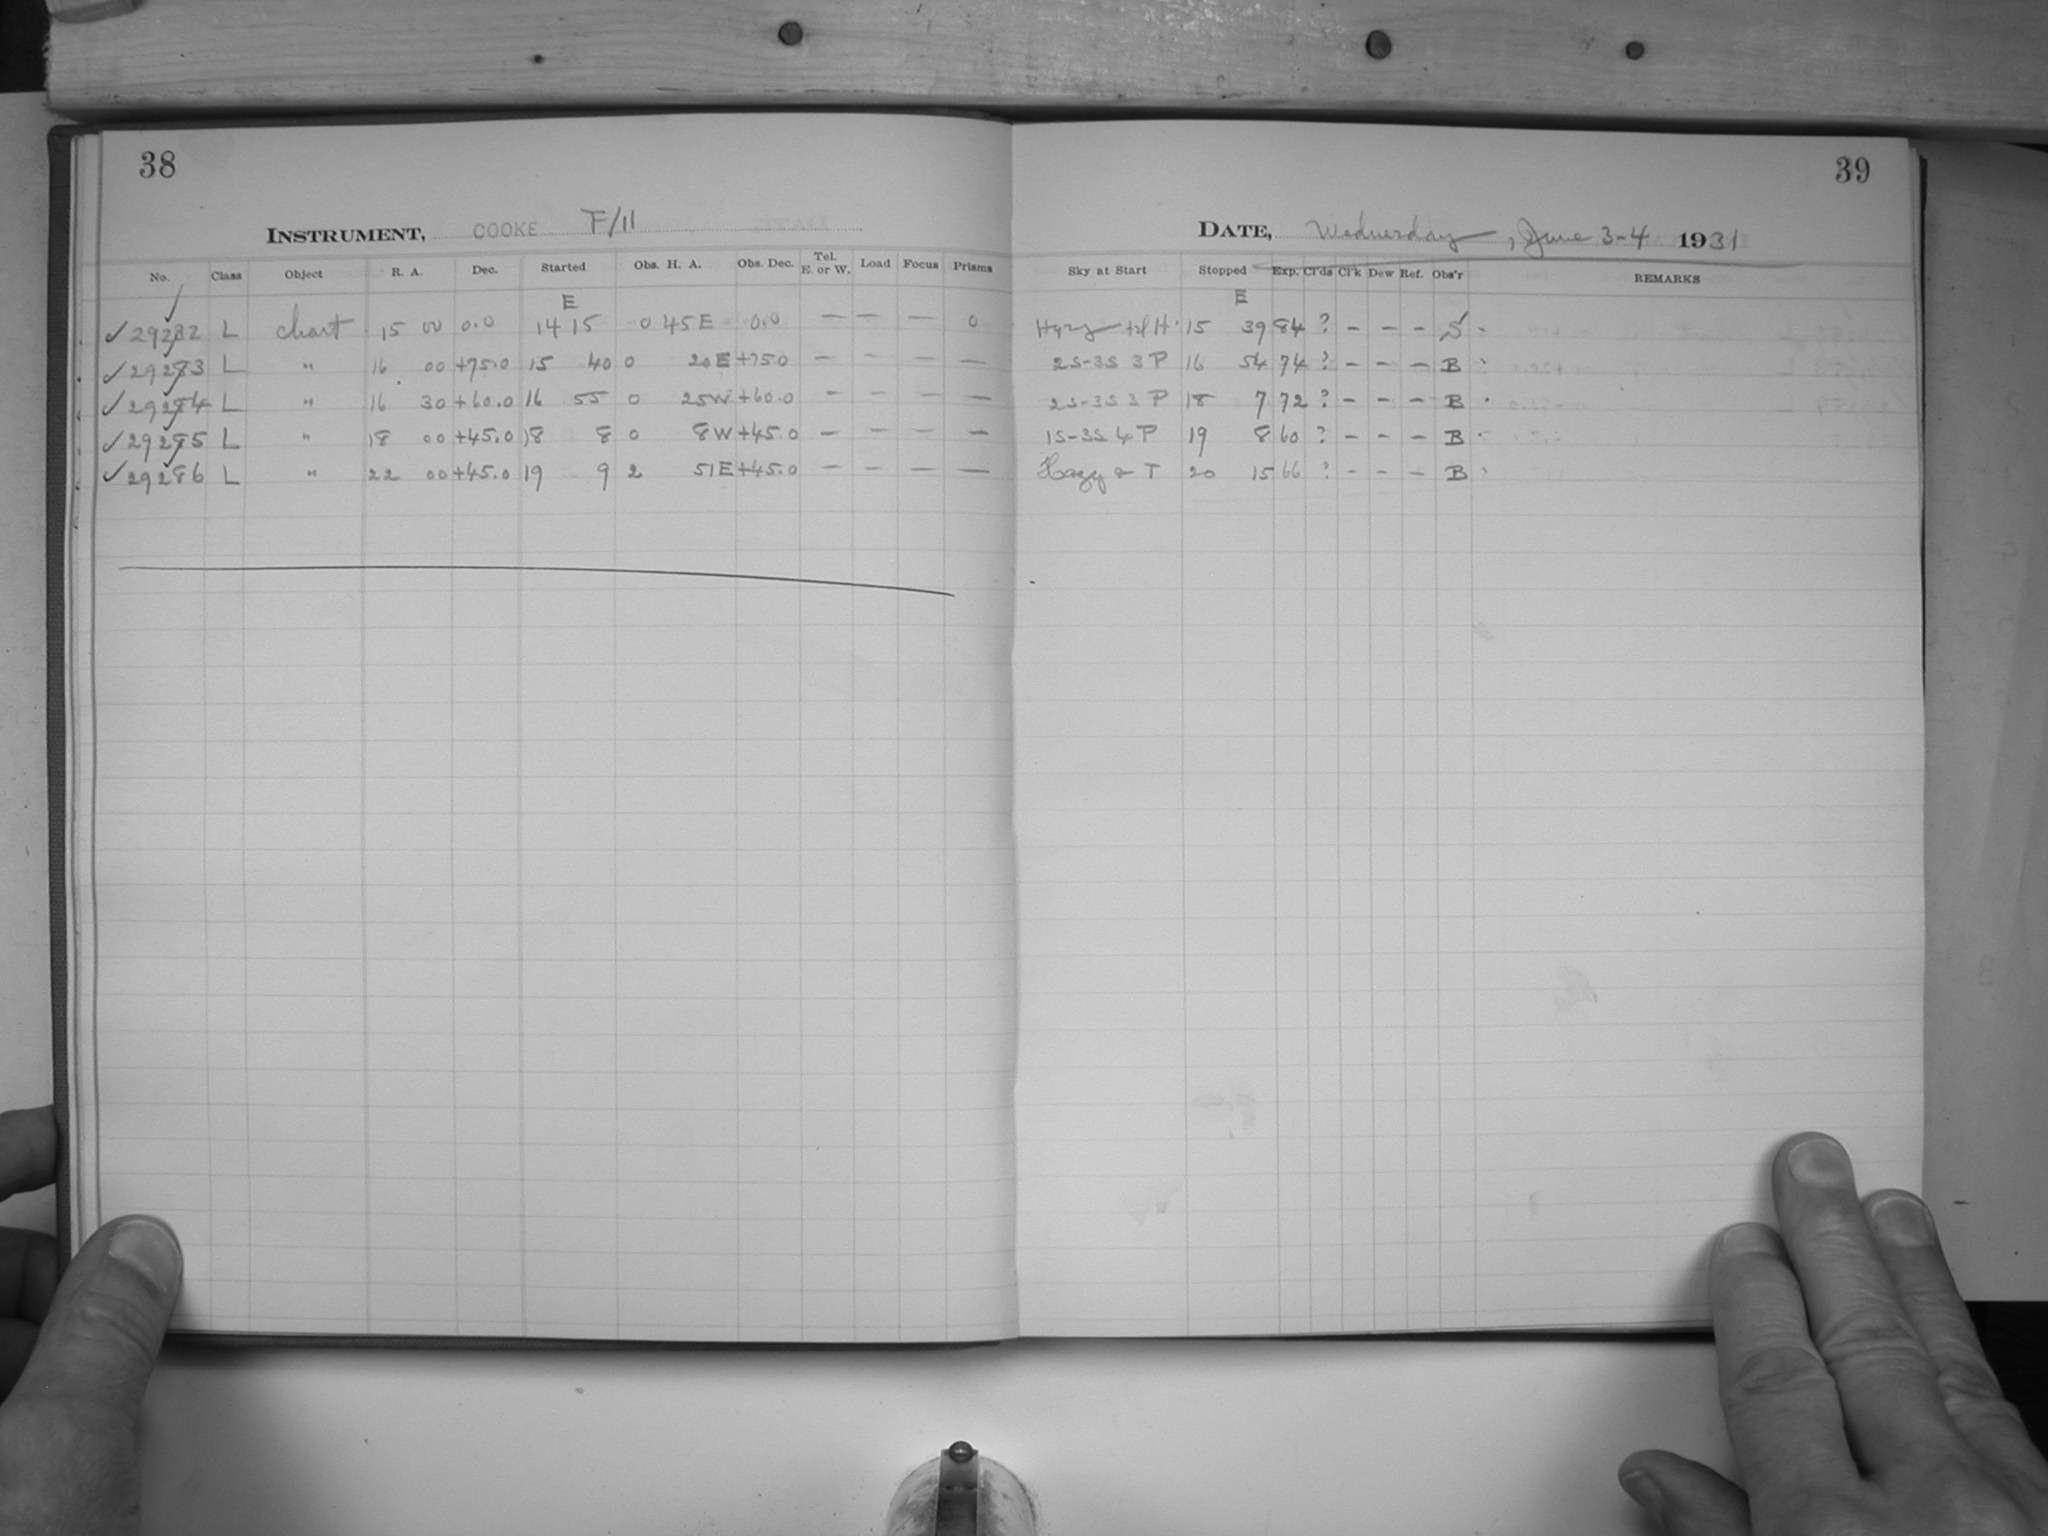 38
39
INSTRUMENT, COOKE F/11
DATE, Wednesday, June 3-4 1931
No. Class Object R. A. Dec. Started Obs. H. A. Obs. Dec. Tel. E. or W. Load Focus Prisms Sky at Start Stopped Exp. Cl'ds Cl'k Dew Ref. Obs'r REMARKS
E E
✓ 29282 L chart 15 00 0.0 14 15 0 45 E 0.0 — — — 0 15 39 84 ? – – – S
✓ 29283 L " 16 00 +75.0 15 40 0 20 E +75.0 — — — — 2S-3S 3 P 16 54 74 ? – – – B
✓ 29284 L " 16 30 +60.0 16 55 0 25 W +60.0 — — — — 2S-3S 3 P 18 7 72 ? – – – B
✓ 29285 L " 18 00 +45.0 18 8 0 8 W +45.0 — — — — 1S-3S 4 P 19 8 60 ? – – – B
✓ 29286 L " 22 00 +45.0 19 9 2 51 E +45.0 — — — — Hazy & T 20 15 66 ? – – – B